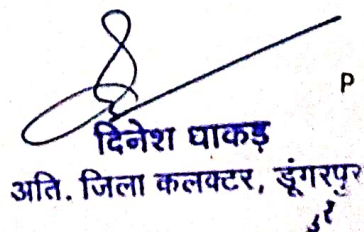 P
दिनेश धाकड़
अति. जिला कलक्टर, डूंगरपुर